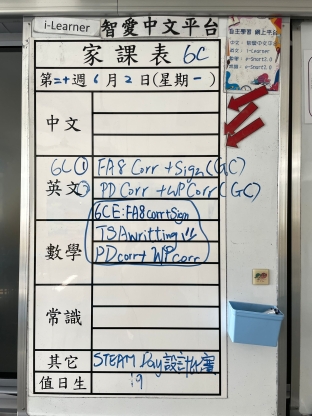 i-Learner 智愛中文平台
家課表 6C
第二十週 6月2日(星期一)
中文
6C ① FA8 Corr + Sign (GC)
英文 ② PD Corr + WP Corr (GC)
6CE: FA8 corr + Sign
TSA writting
數學
PD corr + WP corr
常識
其它 STEAM Day 設計比賽
值日生 19
自主學習 網上平台